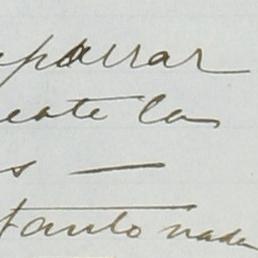 eparrar
eate la
s —
tanto nada